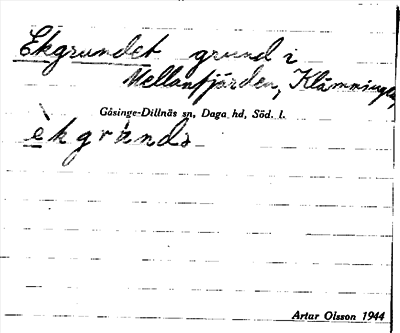 Ekgrundet grund i
Mellanfjärden, Klämmingen,
Gåsinge-Dillnäs sn, Daga hd, Söd. l.
Artar Olsson 1944